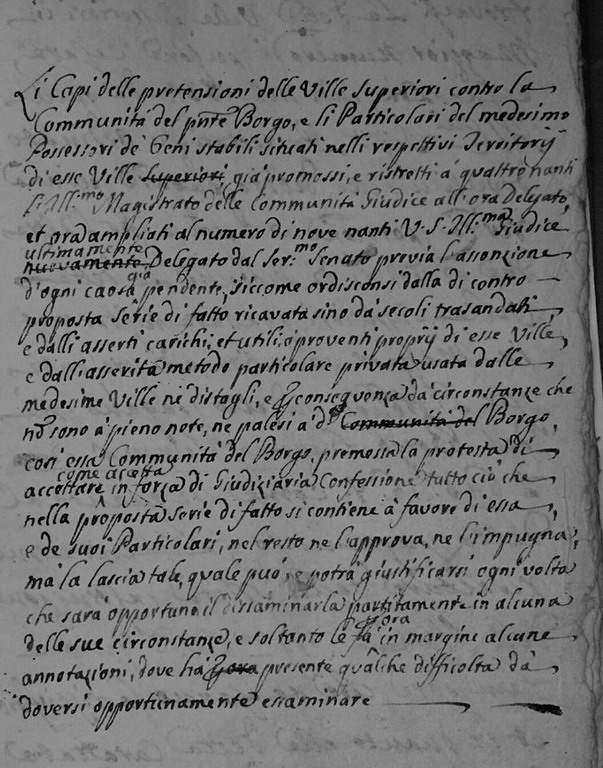 Li Capi delle pretensioni delle Ville superiori contro la
Communità del pnte Borgo, e li Particolari del medesimo
Possessori de beni stabili situati nelli respettivi Territorij
di esse Ville superiori, già promossi, e ristretti a quattro nanti
l'Ill.mo Magistrato delle Communità Giudice all'ora Delegato,
et ora ampliati al numero di nove nanti V. S. Ill.ma Giudice
ultimamente
nuovamente Delegato dal Ser.mo Senato previa l'assonzione
già
d'ogni caosa pendente, siccome ordisconsi dalla di contro
proposta serie di fatto ricavata sino da secoli trasandati,
e dalli asserti carichi, et utili, o proventi proprij di esse Ville,
e dall'asserità metodo particolare privata usata dalle
medesime Ville ne distagli, e conseguenza da circonstanze che
nō sono a pieno note, ne palesi a d.o Communità del Borgo,
così essa Communità del Borgo, premessa la protesta di
come accetta
accettare in forza di Giudiziaria Confessione tutto ciò che
nella proposta serie di fatto si contiene à favore di essa,
e de suoi Particolari, nel resto ne l'approva, ne l'impugna,
mà la lascia tale, quale può, e potrà giustificarsi ogni volta
che sarà opportuno il dissaminarla partitamente in alcuna
ora
delle sue circonstanze, e soltanto le fà in margine alcune
annotazioni, dove hà ora presente qualche difficoltà da
doversi opportunamente essaminare